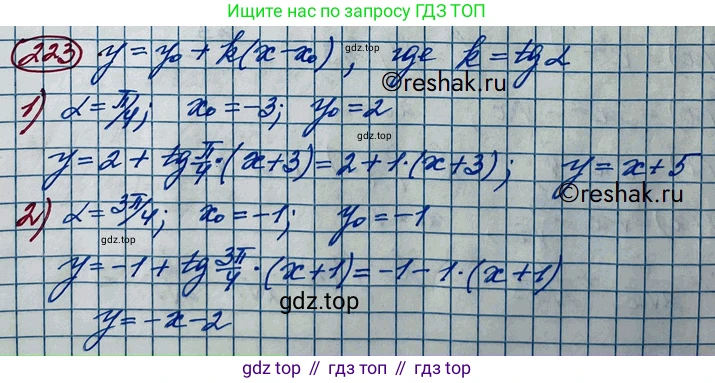 Ищите нас по запросу ГДЗ ТОП
223 y = y₀ + k(x − x₀), где k = tg α
gdz.top
©reshak.ru
1) α = π/4; x₀ = −3; y₀ = 2
gdz.top
y = 2 + tg π/4 · (x + 3) = 2 + 1 · (x + 3); y = x + 5
©reshak.ru
2) α = 3π/4; x₀ = −1; y₀ = −1
gdz.top
y = −1 + tg 3π/4 · (x + 1) = −1 − 1 · (x + 1)
gdz.top
y = −x − 2
gdz top // гдз топ // gdz.top // гдз.топ